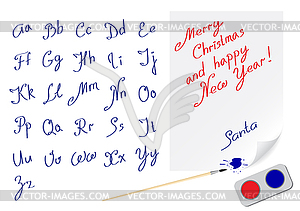 VECTOR-IMAGES.COM
Aa Bb Cc Dd Ee
Ff Gg Hh Ii Jj
Kk Ll Mm Nn Oo
Pp Qq Rr Ss Tt
Uu Vv Ww Xx Yy
Zz
Merry
Christmas
and happy
New Year!
Santa
VECTOR-IMAGES.COM